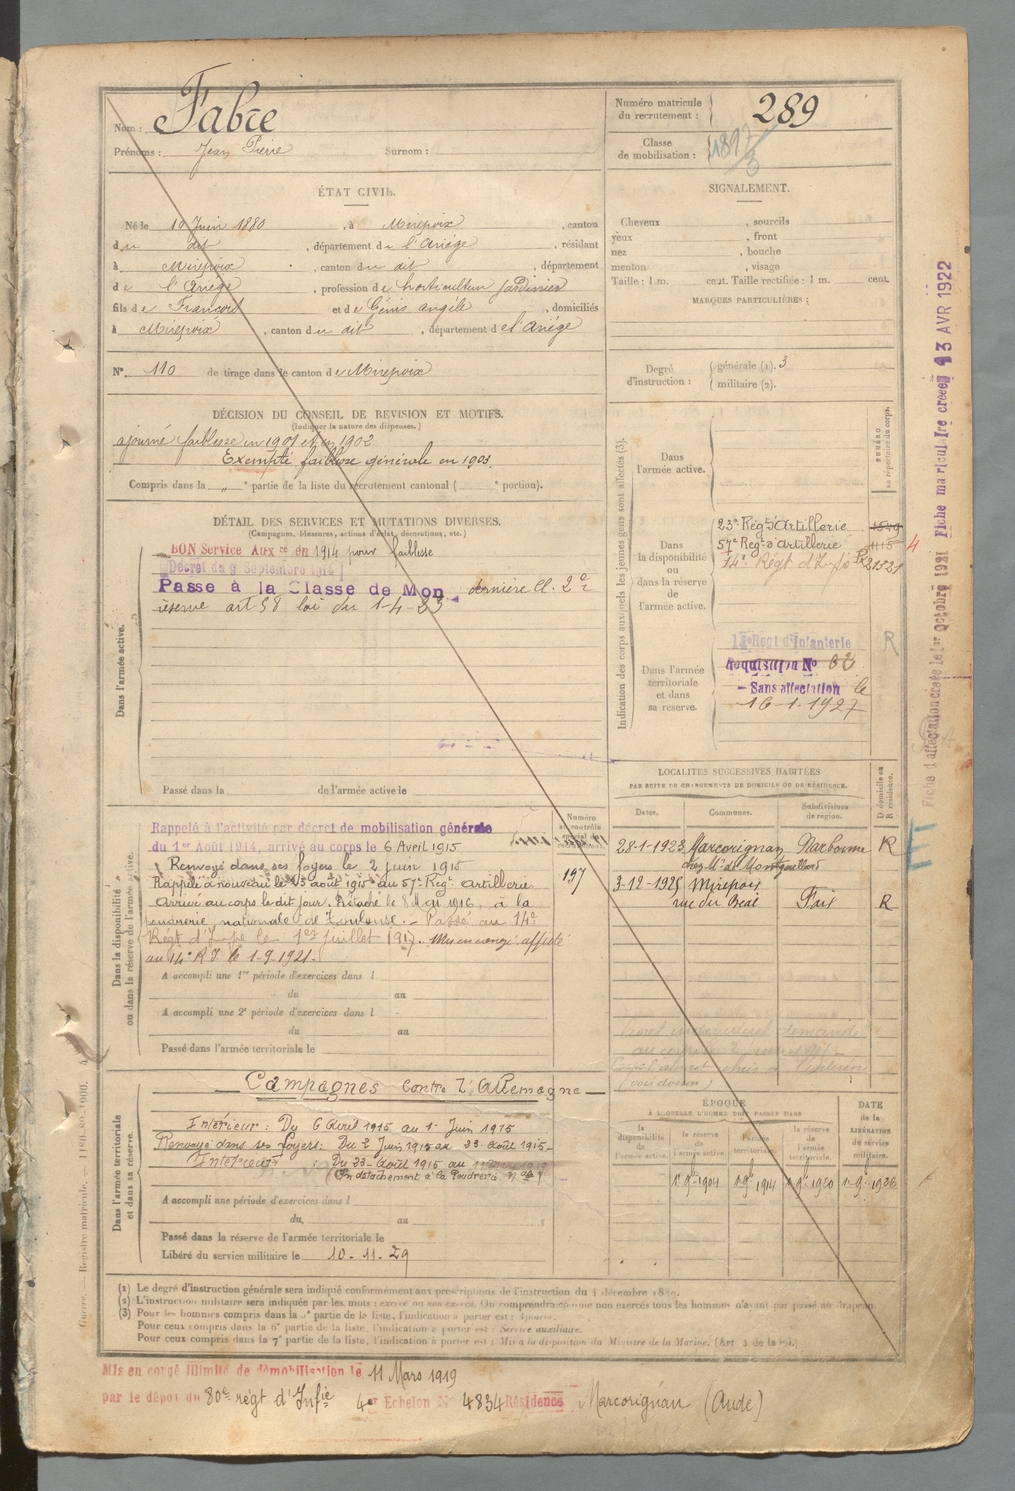 Nom : Fabre
Prénoms : Jean Pierre Surnom :
Numéro matricule du recrutement : 289
Classe de mobilisation : 1897
3
ÉTAT CIVIL.
Né le 19 Juin 1880, à Mirepoix, canton
du dit, département de l'Ariége, résidant
à Mirepoix, canton du dit, département
de l'Ariége, profession de horticulteur Jardinier
fils de François et de Génis angèle, domiciliés
à Mirepoix, canton du dit, département de l'Ariége
N° 110 de tirage dans le canton de Mirepoix
SIGNALEMENT.
Cheveux , sourcils
yeux , front
nez , bouche
menton , visage
Taille : 1 m. cent. Taille rectifiée : 1 m. cent.
MARQUES PARTICULIÈRES :
Degré d'instruction : générale (1). 3
militaire (2).
DÉCISION DU CONSEIL DE REVISION ET MOTIFS.
(Indiquer la nature des dispenses.)
ajourné faiblesse en 1901 et en 1902
Exempté faiblesse générale en 1903.
Compris dans la " e partie de la liste du recrutement cantonal ( e portion).
DÉTAIL DES SERVICES ET MUTATIONS DIVERSES.
(Campagnes, blessures, actions d'éclat, décorations, etc.)
Dans l'armée active.
BON Service Aux re en 1914 pour faiblesse
Décret du 9 Septembre 1914
Passe à la Classe de Mon dernière Cl. 2e
réserve art 58 loi du 1-4-23
Passé dans la de l'armée active le
Indication des corps auxquels les jeunes gens sont affectés (3).
NUMÉRO au répertoire du corps.
Dans l'armée active.
Dans la disponibilité ou dans la réserve de l'armée active.
23e Régt d'Artillerie
57e Régt d'Artillerie
14e Régt d'Infie
Dans l'armée territoriale et dans sa réserve.
Régt d'Infanterie
Requisition N° 02
Sans affectation le
16-1-1927
R
Fiche d'affectation créée le 1er Octobre 1921 Fiche matriculaire créée 13 AVR 1922
LOCALITÉS SUCCESSIVES HABITÉES
PAR SUITE DE CHANGEMENTS DE DOMICILE OU DE RÉSIDENCE.
Dates. Communes. Subdivisions de région. D domicile ou R résidence.
28-1-1923 Marcorignan Narbonne R
chez Mr de Montgaillard
3-12-1925 Mirepoix
rue du Béal Foix R
Dans la disponibilité ou dans la réserve de l'armée active.
Numéro au contrôle spécial du recrutement.
197
Rappelé à l'activité par décret de mobilisation générale
du 1er Août 1914, arrivé au corps le 6 Avril 1915
Renvoyé dans ses foyers le 2 juin 1915
Rappelé à nouveau le 23 août 1915 au 57e Régt Artillerie
Arrivé au corps le dit jour. Détaché le 8 Mai 1916, à la
poudrerie nationale de Toulouse. - Passé au 14e
Régt d'Infie le 1er juillet 1917. Mis en congé affecté
au 14e R I le 1-9-1921.
A accompli une 1re période d'exercices dans l
du au
A accompli une 2e période d'exercices dans l
du au
Passé dans l'armée territoriale le
Dans l'armée territoriale et dans sa réserve.
Campagnes Contre l'Allemagne
Intérieur : Du 6 Avril 1915 au 1er Juin 1915
Renvoyé dans ses foyers : Du 2 Juin 1915 au 23 Août 1915
Intérieur : Du 23 Août 1915 au
(En détachement à la Poudrerie Nale)
A accompli une période d'exercices dans l
du, au
Passé dans la réserve de l'armée territoriale le
Libéré du service militaire le 10-11-29
ÉPOQUE
À LAQUELLE L'HOMME DOIT PASSER DANS
la disponibilité de l'armée active. la réserve de l'armée active. l'armée territoriale. la réserve de l'armée territoriale.
DATE de la LIBÉRATION du service militaire.
1er 9bre 1904 1er 9bre 1914 1er 9bre 1920 1er 9bre 1926
(1) Le degré d'instruction générale sera indiqué conformément aux prescriptions de l'instruction du 4 décembre 1889.
(2) L'instruction militaire sera indiquée par les mots : exercé ou non exercé. On comprendra comme non exercés tous les hommes n'ayant pas passé au drapeau.
(3) Pour les hommes compris dans la partie de la liste, l'indication à porter est : Ajourné.
Pour ceux compris dans la 6e partie de la liste, l'indication à porter est : Service auxiliaire.
Pour ceux compris dans la 7e partie de la liste, l'indication à porter est : Mis à la disposition du Ministre de la Marine. (Art. 4 de la loi).
Mis en congé illimité de démobilisation le 11 Mars 1919
par le dépot du 80e régt d'Infie 4er Echelon N° 4834 Résidence Marcorignan (Aude)